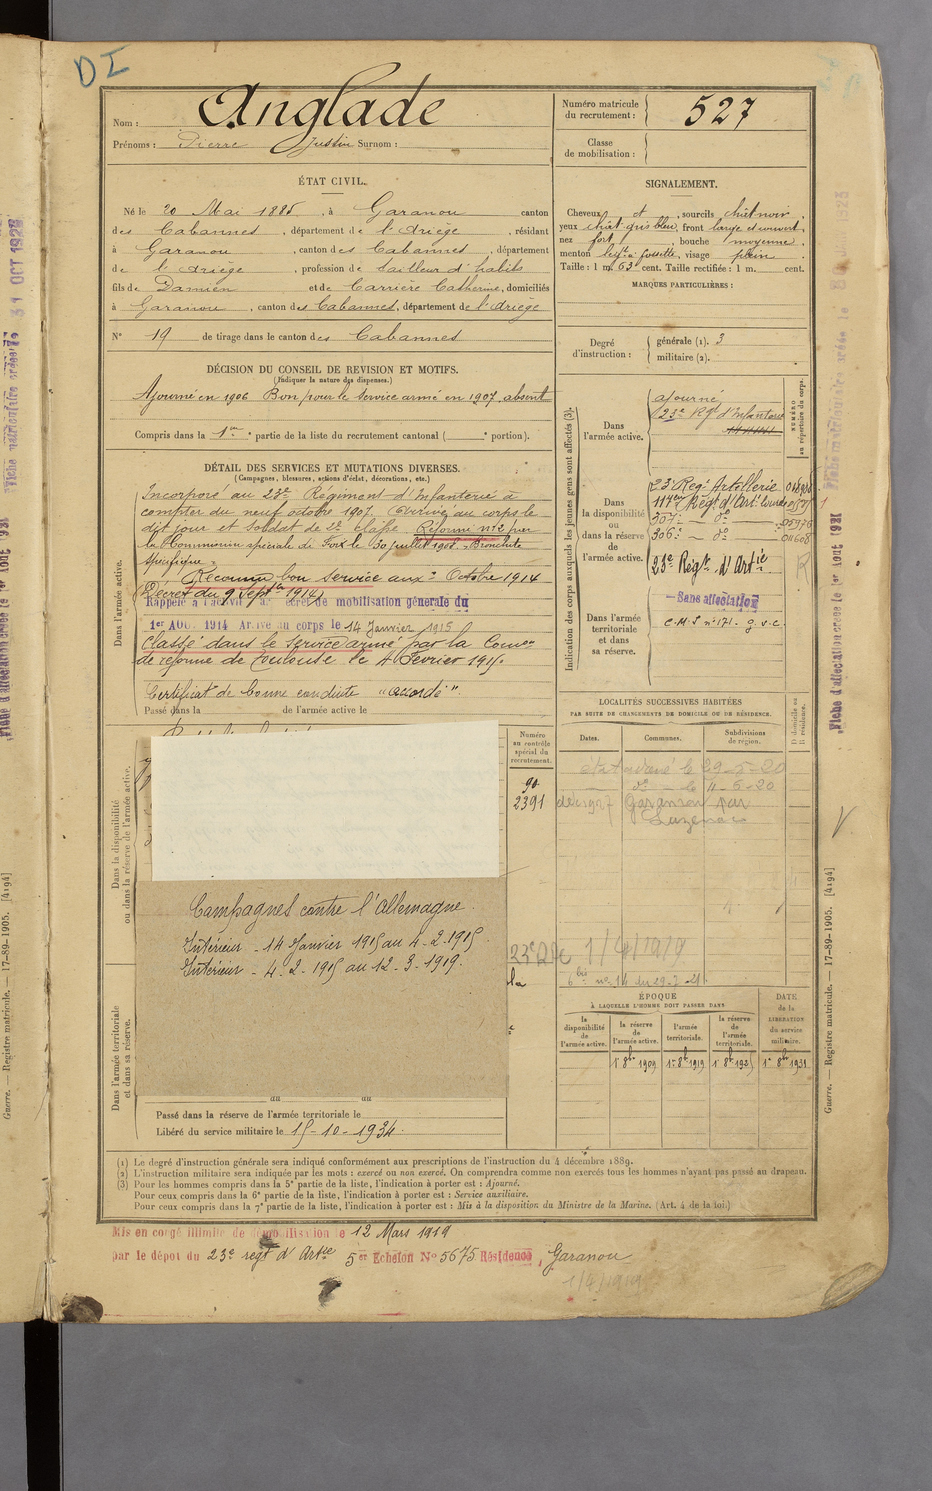 DI
Nom : Anglade
Prénoms : Pierre Justin Surnom :
Numéro matricule du recrutement : 527
Classe de mobilisation :
ÉTAT CIVIL.
Né le 20 Mai 1885, à Garanou canton
des Cabannes, département de l'Ariège, résidant
à Garanou, canton des Cabannes, département
de l'Ariège, profession de tailleur d'habits
fils de Damien et de Carrière Catherine, domiciliés
à Garanou, canton des Cabannes, département de l'Ariège
N° 19 de tirage dans le canton des Cabannes
SIGNALEMENT.
Cheveux et, sourcils chât noir,
yeux chât. gris bleu, front large et ouvert,
nez fort, bouche moyenne,
menton à fossette, visage plein.
Taille : 1 m. 63 cent. Taille rectifiée : 1 m. cent.
MARQUES PARTICULIÈRES :
Degré d'instruction : générale (1). 3
militaire (2).
DÉCISION DU CONSEIL DE REVISION ET MOTIFS.
(Indiquer la nature des dispenses.)
Ajourné en 1906 Bon pour le service armé en 1907, absent
Compris dans la 1ère partie de la liste du recrutement cantonal ( portion).
DÉTAIL DES SERVICES ET MUTATIONS DIVERSES.
(Campagnes, blessures, actions d'éclat, décorations, etc.)
Dans l'armée active.
Incorporé au 23e Régiment d'Infanterie à
compter du neuf octobre 1907. Arrivé au corps le
dit jour et soldat de 2e classe. Réformé n°2 par
la Commission spéciale de Foix le 30 juillet 1908. Bronchite
spécifique.
Reconnu bon service aux: Octobre 1914
(Décret du 9 Septbre 1914)
Rappelé à l'activité décret de mobilisation générale du
1er AOU. 1914 Arrivé au corps le 14 Janvier 1915
Classé dans le service armé par la Comon
de réforme de Toulouse le 4 Février 1915.
Certificat de bonne conduite "accordé".
Passé dans la de l'armée active le
Indication des corps auxquels les jeunes gens sont affectés (3).
NUMÉRO au répertoire du corps.
Dans l'armée active.
ajourné
23e Rgt d'Infanterie
Dans la disponibilité ou dans la réserve de l'armée active.
23 Reg. Artillerie
117e Régt d'Art. lourde
307e — do —
306e — do —
23e Régt d'Artie
Dans l'armée territoriale et dans sa réserve.
Sans affectation
C.M.S n° 171. g.v.c.
LOCALITÉS SUCCESSIVES HABITÉES
PAR SUITE DE CHANGEMENTS DE DOMICILE OU DE RÉSIDENCE.
Dates. Communes. Subdivisions de région. D domicile ou R résidence.
le 29-5-20
do — le 11-6-20
déc 1927 Garanou par
Luzenac
Numéro au contrôle spécial du recrutement.
90
2391
Dans la disponibilité ou dans la réserve de l'armée active.
Campagnes contre l'Allemagne.
Intérieur - 14 Janvier 1915 au 4-2-1915
Intérieur - 4-2-1915 au 12-3-1919.
1/4/1919
Dans l'armée territoriale et dans sa réserve.
ÉPOQUE
À LAQUELLE L'HOMME DOIT PASSER DANS
la disponibilité de l'armée active.
la réserve de l'armée active.
l'armée territoriale.
la réserve de l'armée territoriale.
DATE de la LIBÉRATION du service militaire.
1er 8bre 1909 1er 8bre 1919 1er 8bre 1925 1er 8bre 1931
au au
Passé dans la réserve de l'armée territoriale le
Libéré du service militaire le 15-10-1934.
(1) Le degré d'instruction générale sera indiqué conformément aux prescriptions de l'instruction du 4 décembre 1889.
(2) L'instruction militaire sera indiquée par les mots : exercé ou non exercé. On comprendra comme non exercés tous les hommes n'ayant pas passé au drapeau.
(3) Pour les hommes compris dans la 5e partie de la liste, l'indication à porter est : Ajourné.
Pour ceux compris dans la 6e partie de la liste, l'indication à porter est : Service auxiliaire.
Pour ceux compris dans la 7e partie de la liste, l'indication à porter est : Mis à la disposition du Ministre de la Marine. (Art. 4 de la loi.)
Mis en congé illimité de démobilisation le 12 Mars 1919
par le dépôt du 23e regt d'Artie 5er Echelon No 5675 Résidence, Garanou
1/4/1919
Guerre. — Registre matricule. — 17-89-1905. [4194]
Fiche matriculaire créée le 31 OCT 1923
Fiche d'affectation créée le 1er Août 1931
Guerre. — Registre matricule. — 17-89-1905. [4194]
Fiche d'affectation créée le 1er Août 1931
Fiche matriculaire créée le